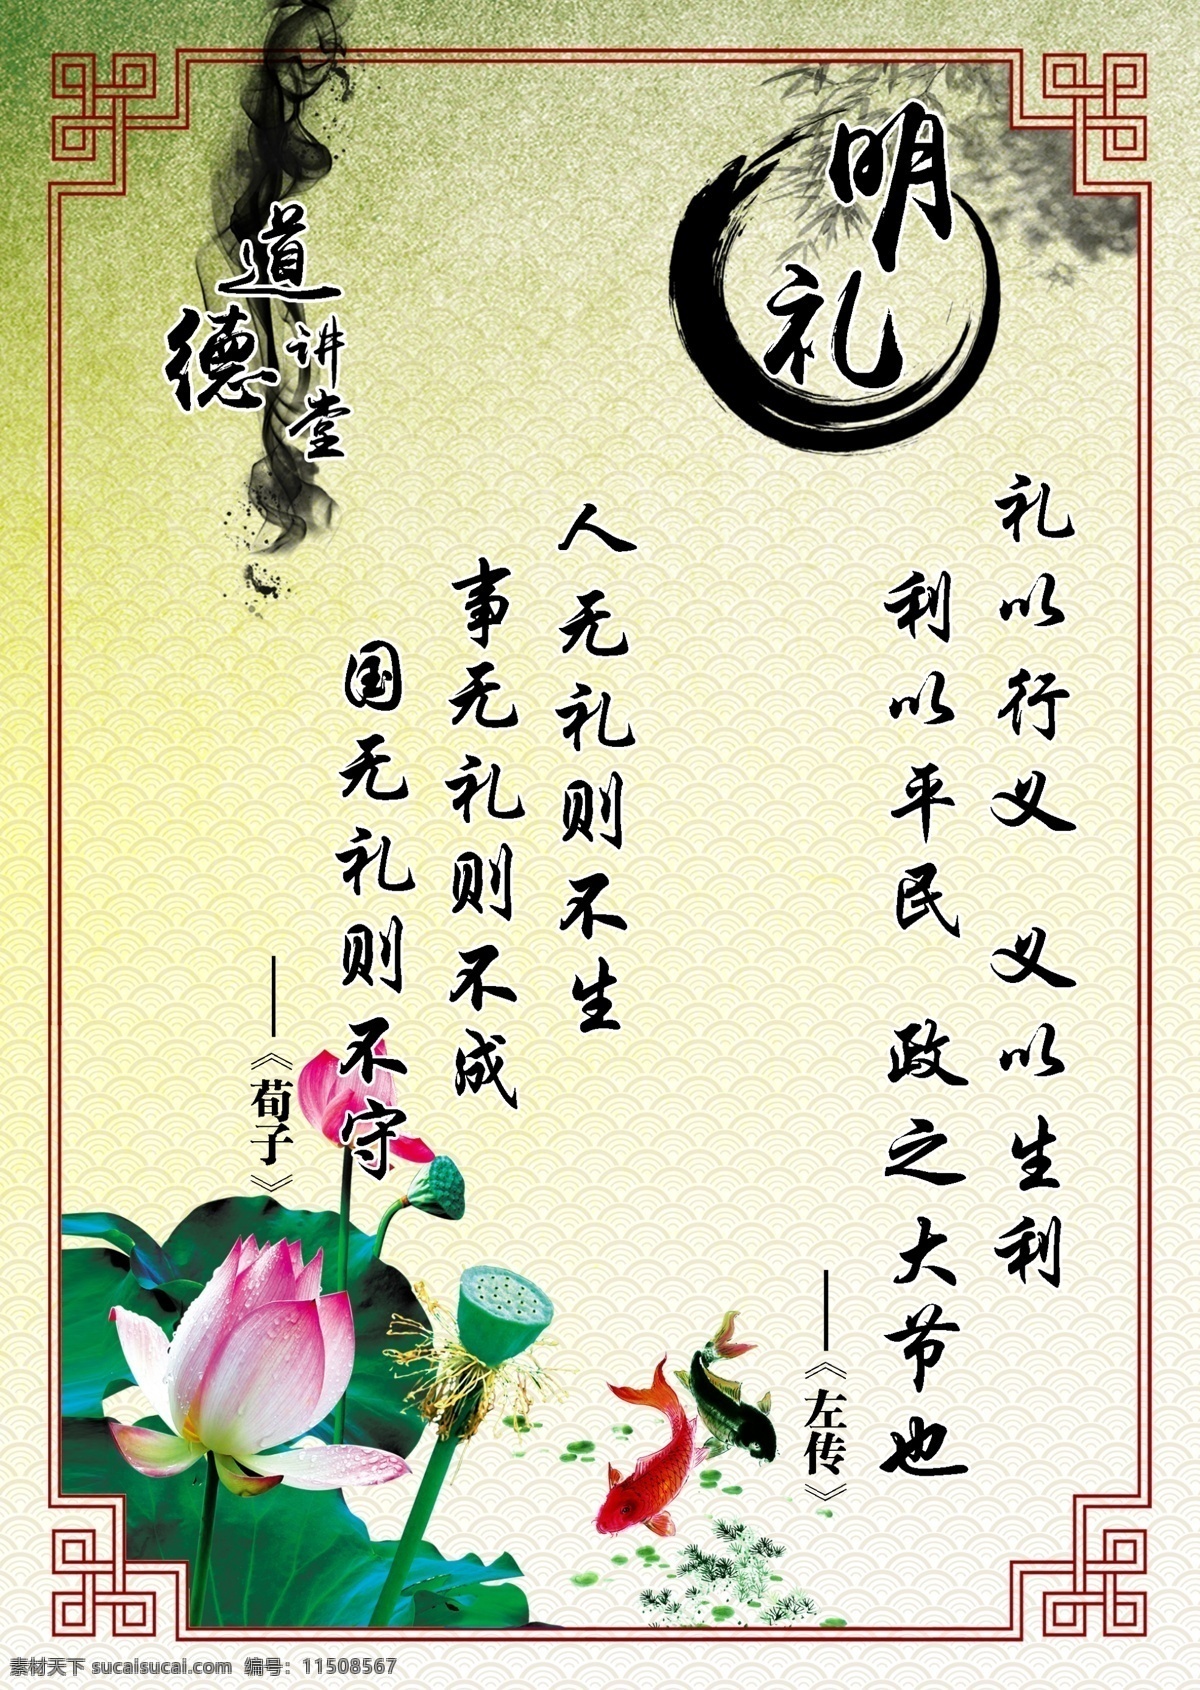 明礼
礼以行义 义以生利
利以平民 政之大节也
——《左传》
人无礼则不生
事无礼则不成
国无礼则不守
——《荀子》
道德
讲堂
素材天下 sucaisucai.com 编号：11508567